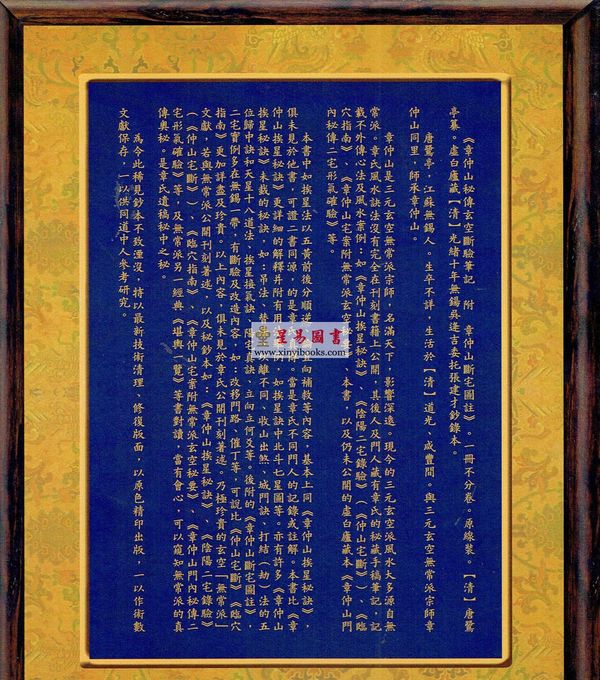 《章仲山秘傳玄空斷驗筆記 附 章仲山斷宅圖註》。一冊不分卷。原線裝。【清】唐鷺
亭纂。虛白廬藏【清】光緒十年無錫吳達吉委托張建才鈔錄本。
唐鷺亭,江蘇無錫人。生卒不詳,生活於【清】道光、咸豐間。與三元玄空無常派宗師章
仲山同里,師承章仲山。
章仲山是三元玄空無常派宗師,名滿天下,影響深遠。現今的三元玄空派風水大多源自無
常派。章氏風水訣法沒有完全在刊刻書籍上公開,其後人及門人藏有章氏的秘藏手稿筆記,記
載不外傳心法及風水案例:如《章仲山挨星秘訣》、《陰陽二宅錄驗》(《仲山宅斷》)、《臨
穴指南》、《章仲山宅案附無常派玄空秘要》、本書,以及仍未公開的虛白廬藏本《章仲山門
內秘傳二宅形氣確驗》等。
本書中如挨星法以五黃前後分順逆 向補救等內容,基本上同《章仲山挨星秘訣》,
俱未見於他書,可證二書同源,的是章 。當是章氏不同門人的記錄或註解。本書比《章
仲山挨星秘訣》更詳細的解釋并附有用 例,如挨星訣中北斗七星圖等。亦有許多《章仲山
挨星秘訣》未載的秘訣,如:吊法、替 離不同、收山出煞、城門訣、打結(劫)法的五
位歸中訣和天星十八道法、挨星接氣訣、陽宅真訣、立向立何爻等。後附的《章仲山斷宅圖註》,
二宅實例多在無錫一帶,有斷驗及改造內容,如:改移門路、催丁等,可說比《仲山宅斷》《臨穴
指南》更加詳盡及珍貴。以上內容,俱未見於章氏公開刊刻著述。乃極珍貴的玄空「無常派」
文獻,若與無常派公開刊刻著述,以及秘鈔本如:《章仲山挨星秘訣》、《陰陽二宅錄驗》
(《仲山宅斷》)、《臨穴指南》、《章仲山宅案附無常派玄空秘要》、《章仲山門內秘傳二
宅形氣確驗》等,及無常派另一經典《堪輿一覽》等書對讀,當有會心,可以窺知無常派的真
傳奧秘。是章氏遺稿秘中之秘。
為令此稀見鈔本不致湮沒,特以最新技術清理、修復版面,以原色精印出版,一以作術數
文獻保存,一以供同道中人參考研究。
星易圖書
www.xinyibooks.com